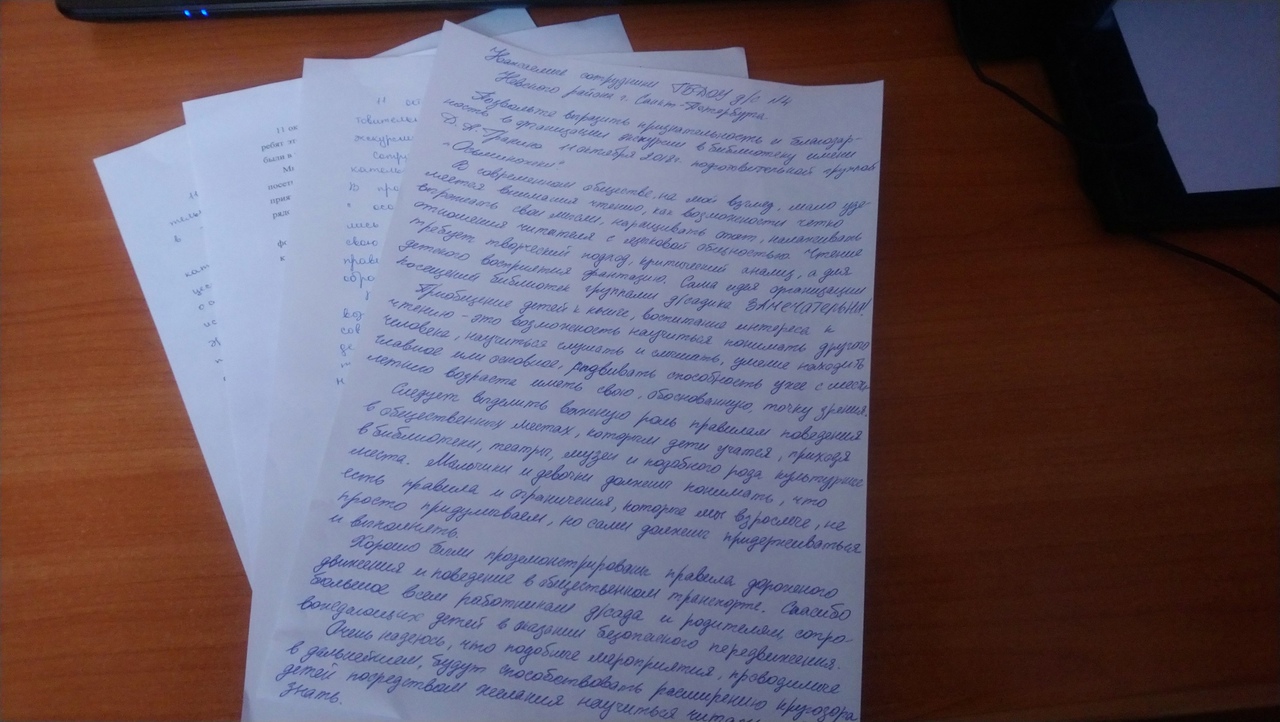 Уважаемые сотрудники ГБДОУ д/с №4
Невского района г. Санкт-Петербурга.
Позвольте выразить признательность и благодар-
ность в организации экскурсии в библиотеку имени
Д. А. Гранина 11 октября 2018г. подготовительной группой
"Осьминожки"
В современном обществе, на мой взгляд, мало уде-
ляется внимания чтению, как возможности четко
выражать свои мысли, наращивать опыт, налаживать
отношения читателя с языковой общностью. Чтение
требует творческий подход, критический анализ, а для
детского восприятия фантазию. Сама идея организации
посещений библиотек группами д/садика ЗАМЕЧАТЕЛЬНА!
Приобщение детей к книге, воспитание интереса к
чтению - это возможность научиться понимать другого
человека, научиться слушать и слышать, умение находить
главное или основное, развивать способность уже с шести-
летнего возраста иметь свою, обоснованную, точку зрения.
Следует выделить важную роль правилам поведения
в общественных местах, которым дети учатся, приходя
в библиотеки, театры, музеи и подобного рода культурные
места. Мальчики и девочки должны понимать, что
есть правила и ограничения, которые мы взрослые, не
просто придумываем, но сами должны придерживаться
и выполнять.
Хорошо были продемонстрированы правила дорожного
движения и поведение в общественном транспорте. Спасибо
большое всем работникам д/сада и родителям сопро-
вождающих детей в оказании безопасного передвижения.
Очень надеюсь, что подобные мероприятия, проводимые
в дальнейшем, будут способствовать расширению кругозора
детей посредством желания научиться читать
знать.
11 ок
ребят
были в
посет
прия
ряд
11 ок
экскурси
Сотру
катель
В про
" осо
лись
свою
прав
обра
воз
сов
де